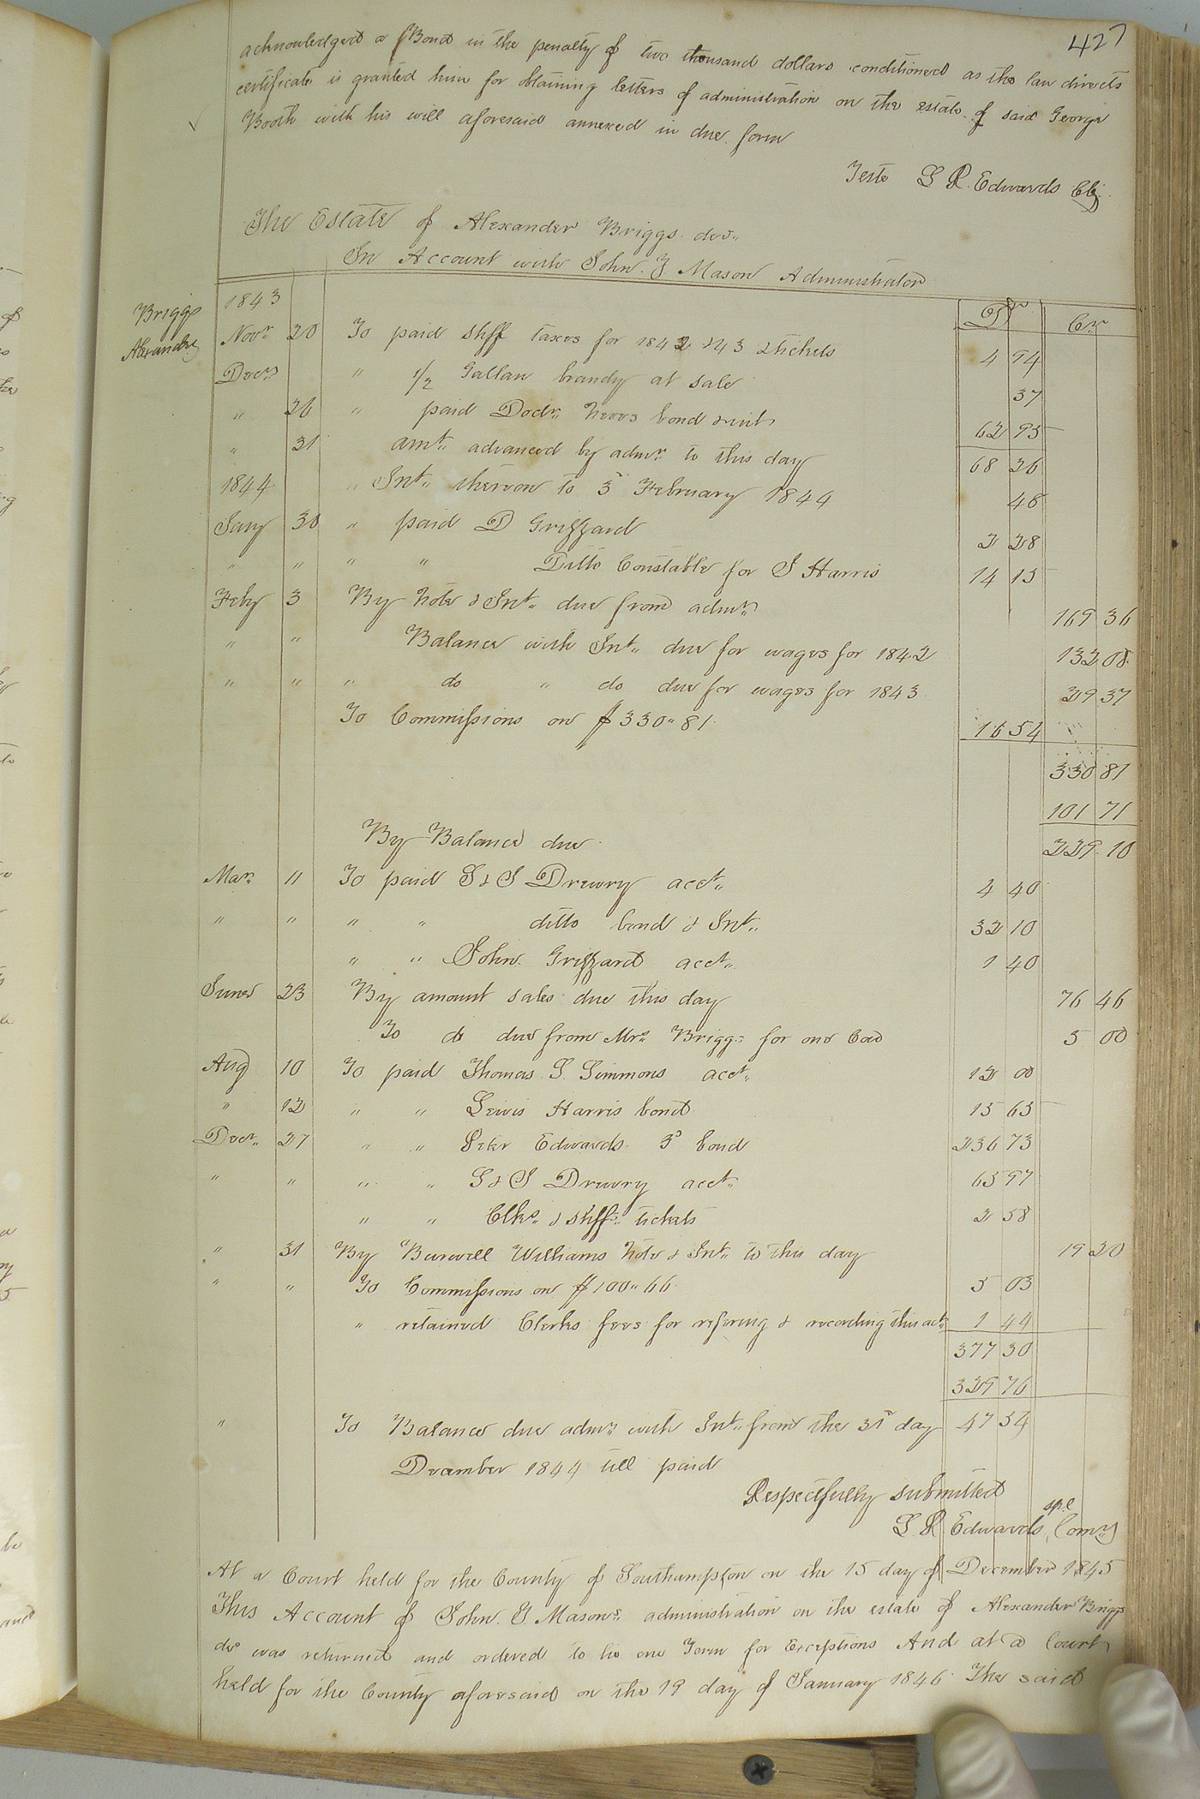 427
acknowledged a Bond in the penalty of two thousand dollars conditioned as the law directs
certificate is granted him for obtaining letters of administration on the estate of said George
Booth with his will aforesaid annexed in due form
Teste L R Edwards Clk
The Estate of Alexander Briggs dec..
In Account with John T Mason Administrator
Briggs
Alexander
1843 Dr Cr
Novr 20 To paid Shff taxes for 1842 & 43 & tickets 4 94
Decr " 1/2 Gallan brandy at sale 37
" 26 " paid Docr.. bond & int 62 95
" 31 amt.. advanced by admr to this day 68 26
1844 " Int.. thereon to 3 February 1844 46
Jany 30 " paid D Grizzard 2 28
" " " " Ditto Constable for J Harris 14 15
Feby 3 By Note & Int.. due from admr 169 36
" " Balance with Int.. due for wages for 1842 132 08
" " " do " do due for wages for 1843 29 37
To Commissions on $330..81 16 54
330 81
101 71
By Balance due 229 10
Mar 11 To paid S & J Drewry acct.. 4 40
" " " " ditto bond & Int.. 32 10
" " John Grizzard acct.. 1 40
June 23 By amount sales due this day 76 46
To do due from Mrs Briggs for one Cow 5 00
Aug 10 To paid Thomas L Simmons acct.. 12 00
" 12 " " Lewis Harris bond 15 65
Decr.. 27 " " Peter Edwards bond 236 73
" " " " S & J Drewry acct.. 65 97
" " Clks.. & Shffs tickets 2 58
" 31 By Burwell Williams Note & Int.. to this day 19 20
" " To Commissions on $100..66 5 03
" retained Clerks fees for refering & recording this act 1 44
377 30
329 76
" To Balance due admr with Int.. from the 31 day 47 54
December 1844 till paid
Respectfully submitted
L R Edwards spl Comr
At a Court held for the County of Southampton on the 15 day of December 1845
This Account of John T Masons administration on the estate of Alexander Briggs
dec was returned and ordered to lie one Term for Exceptions And at a Court
held for the County aforesaid on the 19 day of January 1846 The said